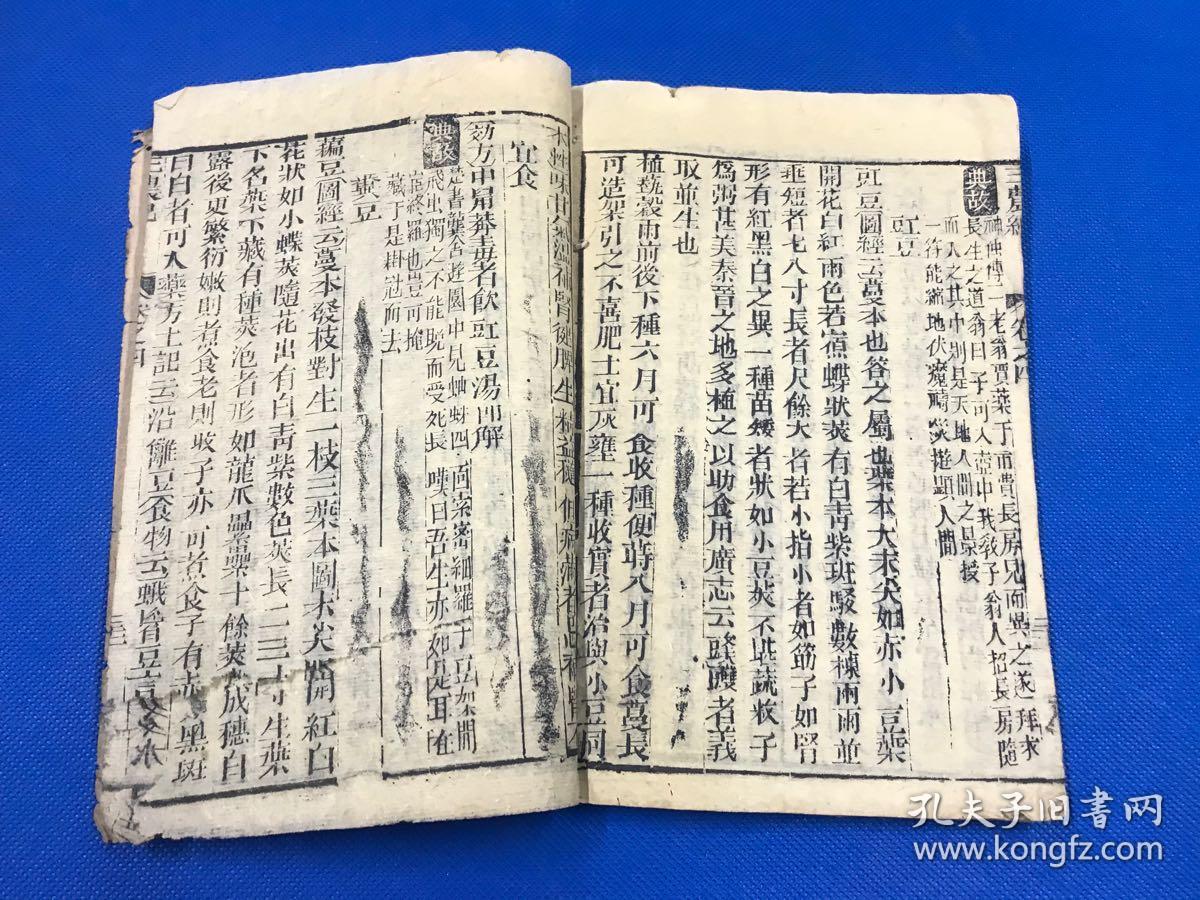 三農紀
卷之四
典故
神仙傳 老翁賣葉于市費長房見而異之遂拜求
長生之道翁曰子可入壺中我教子翁人招長房隨
而入之其中則是天地人間之景授
一符能縮地伏魔禱災遊顯人間
豇豆
豇豆圖經云蔓本也答之屬也葉本大末尖如赤小豆葉
開花白紅兩色若蛾蝶狀莢有白青紫班駁數棟兩兩並
垂短者七八寸長者尺餘大者若小指小者如筯子如腎
形有紅黑白之異一種苗矮者狀如小豆莢不堪蔬收子
爲粥甚美秦晉之地多植之以助食用廣志云䜶䝄者義
取並生也
植藝穀雨前後下種六月可食收種便蒔八月可食蔓長
可造架引之不喜肥土宜灰壅一種收實者治與小豆同
本性味甘氣溫補腎健脾生精益
宜食
効方中鼠莽毒者飲豇豆湯即解
典故
楚書龔舍遊園中見蜘蛛四面索密細羅于豆架間
飛虫獨之不能脫而受死長嘆曰吾生亦如是耳仕
宦終羅也豈可掩
藏于是掛冠而去
藊豆
藊豆圖經云蔓本發枝對生一枝三葉本圖末尖開紅白
花狀如小蝶莢隨花出有白青紫數色莢長二三寸生葉
下名葉下藏有種莢泡者形如龍爪纍纍十餘莢成穗白
露後更繁衍嫩則煮食老則收子亦可煮食子有赤黑斑
白白者可入藥方土記云沿籬豆食物云蛾眉豆
三農紀
卷之四